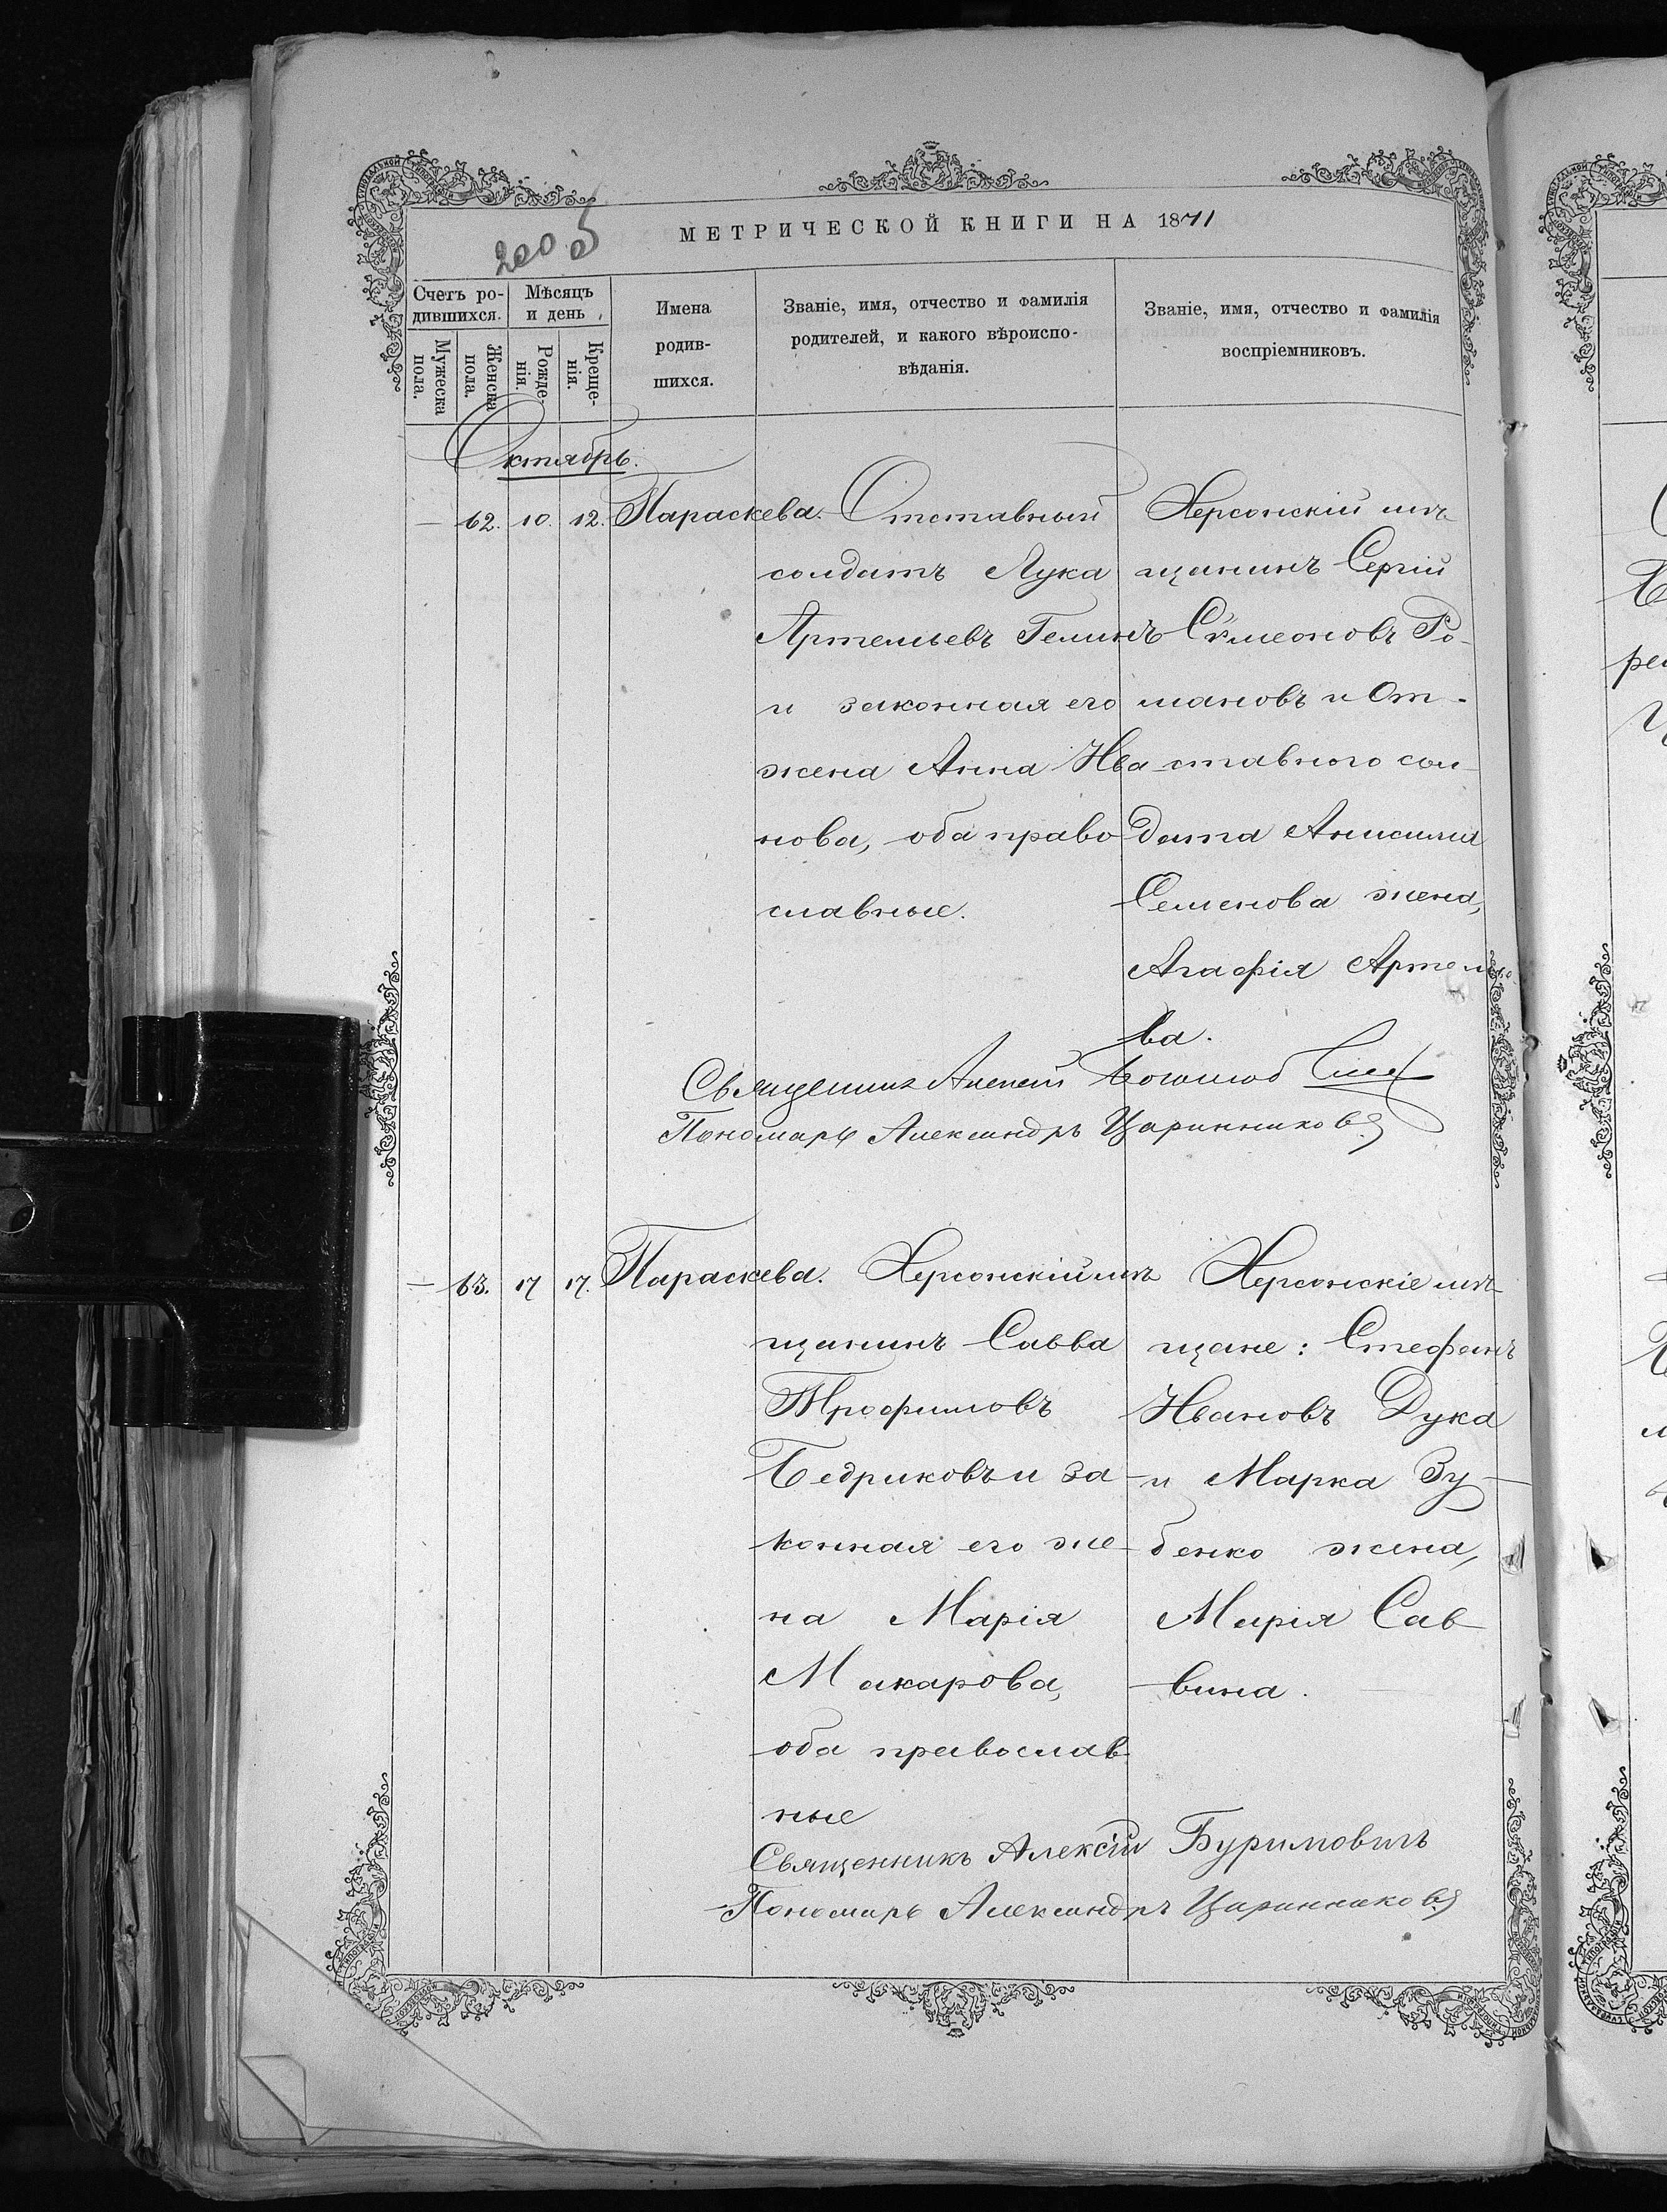 2005
МЕТРИЧЕСКОЙ КНИГИ НА 1871
Счетъ родившихся.
Мужеска пола.
Женска пола.
Мѣсяцъ и день
Рожденія.
Крещенія.
Имена родившихся.
Званіе, имя, отчество и фамилія родителей, и какого вѣроисповѣданія.
Званіе, имя, отчество и фамилія воспріемниковъ.
Октябрь.
— 62. 10. 12. Параскева.
Отставный
солдатъ Лука
Артемьевъ Гелинъ
и законная его
жена Анна Ива
нова, оба право
славные.
Херсонскій мѣ-
щанинъ Сергій
Сѵмеоновъ Ро-
мановъ и От-
ставного сол-
дата Анисима
Семенова жена,
Агафія Артемье
ва.
Священникъ Алексій
Пономарь Александръ Царинниковъ
— 63. 17 17. Параскева.
Херсонскій мѣ
щанинъ Савва
Трофимовъ
Бедриковъ и за-
конная его же-
на Марія
Макарова,
оба православ-
ные
Херсонскіе мѣ-
щане: Стефанъ
Ивановъ Дука
и Марка Зу-
бенко жена,
Марія Сав-
вина.
Священникъ Алексій Буримовичъ
Пономарь Александръ Царинниковъ